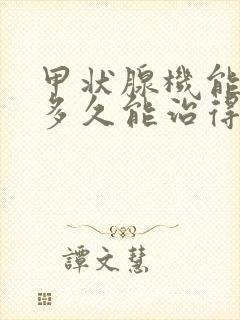 甲状腺機能
多久能治得
譚文慧